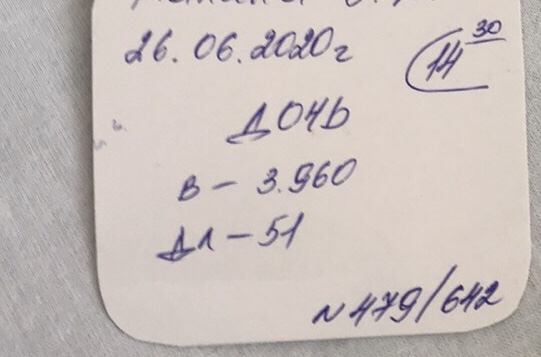 26.06.2020г 14 30
ДОЧЬ
в – 3.960
Дл – 51
N 479/642